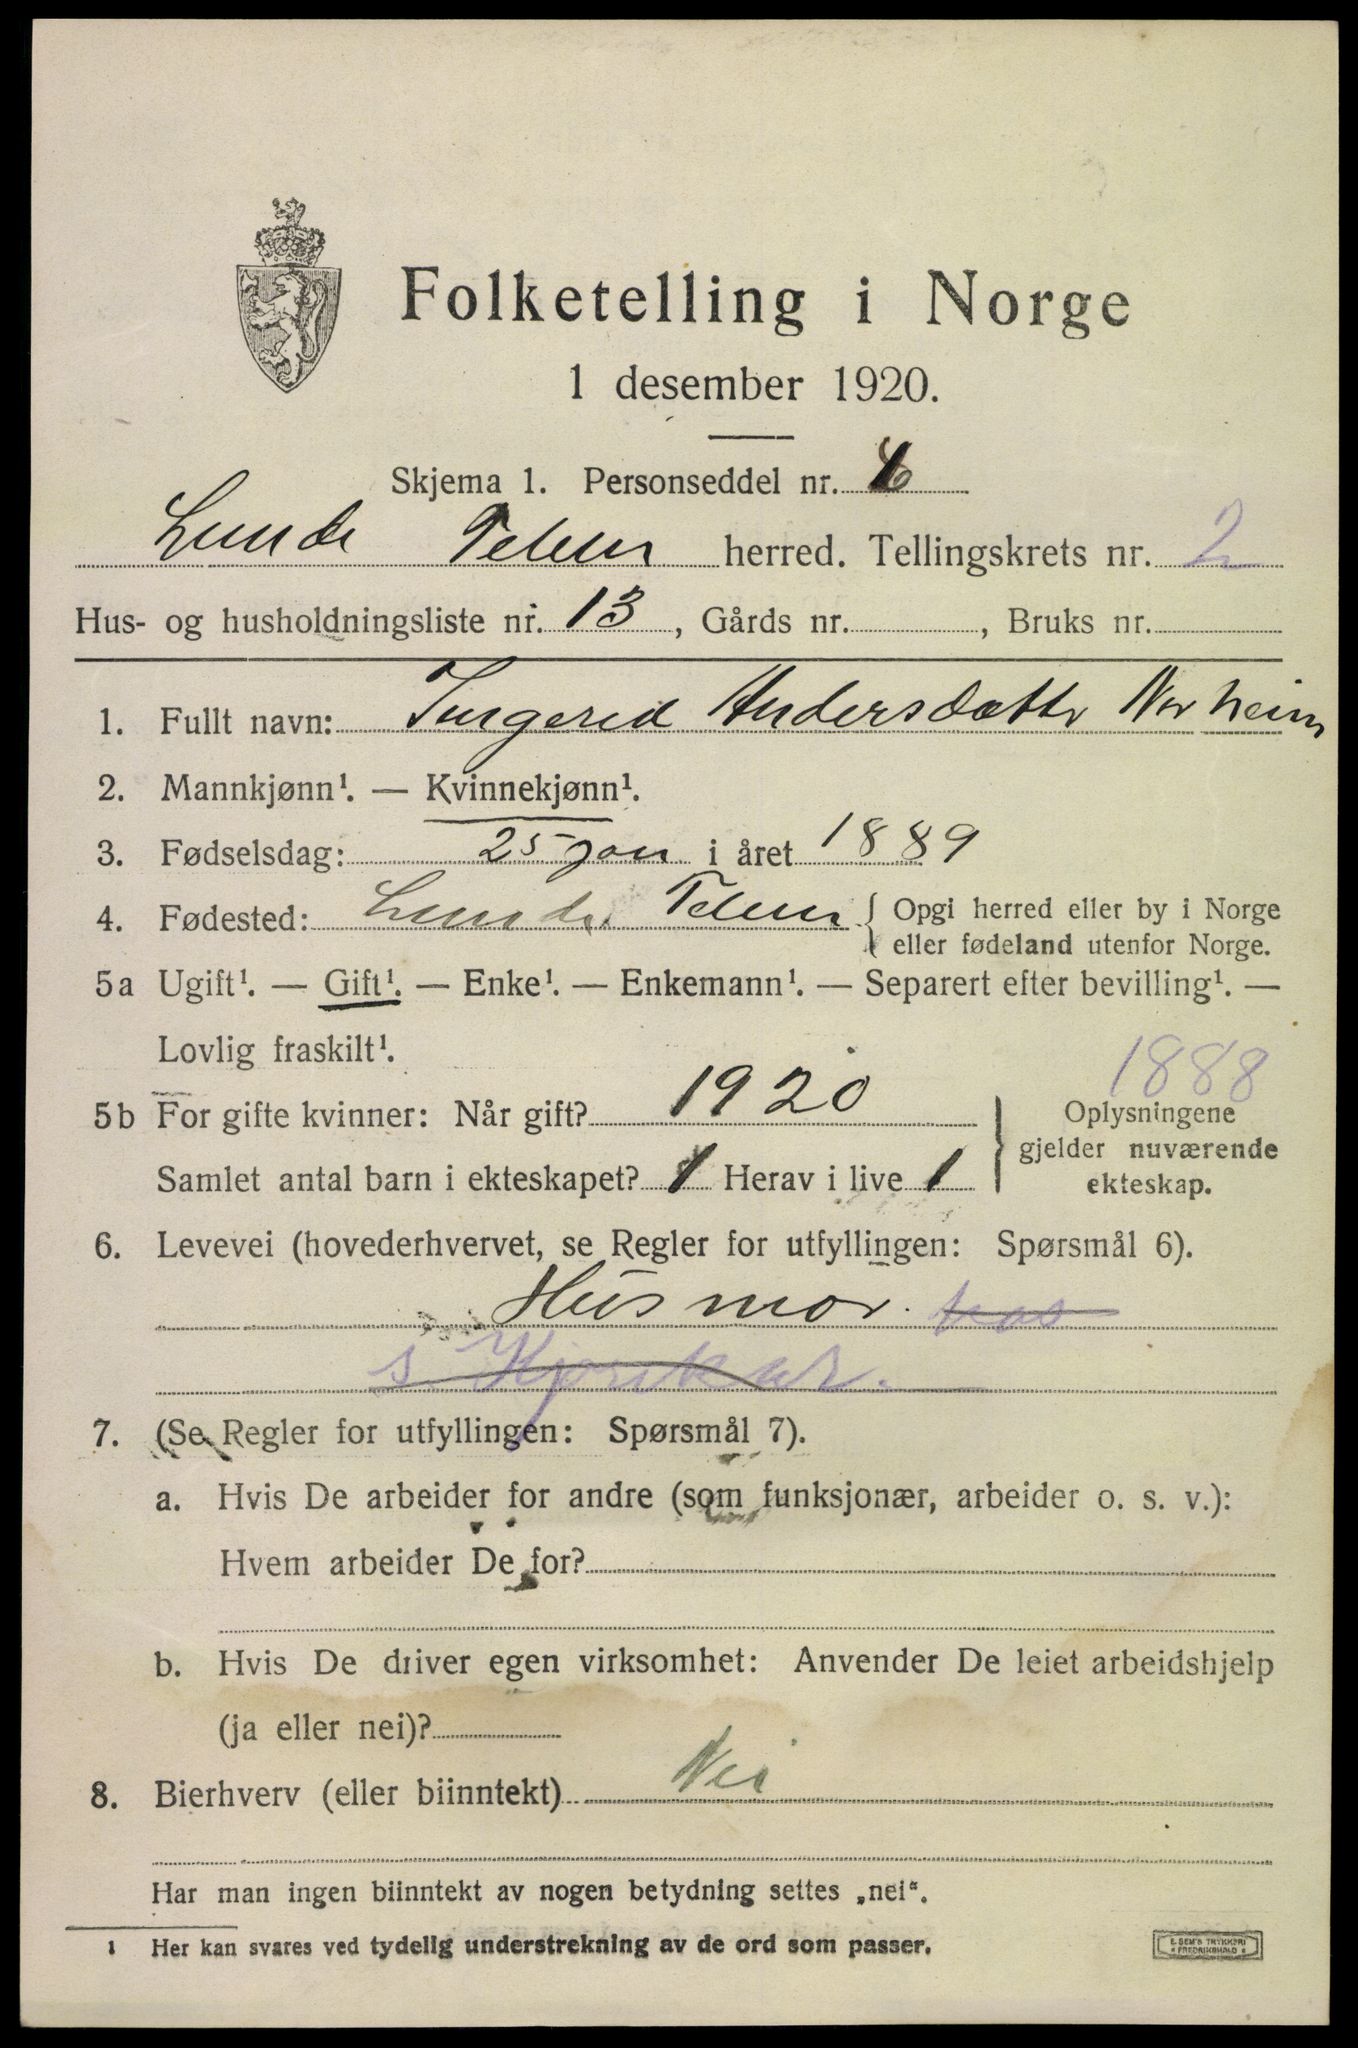 Folketelling i Norge
1 desember 1920.
Skjema 1. Personseddel nr.
Lunde Telem herred. Tellingskrets nr. 2
Hus- og husholdningsliste nr. 13, Gårds nr. , Bruks nr.
1. Fullt navn: Ingerid Andersdatter Norheim
2. Mannkjønn¹. — Kvinnekjønn¹.
3. Fødselsdag: 25 jan i året 1889
4. Fødested: Lunde. Telem { Opgi herred eller by i Norge
eller fødeland utenfor Norge.
5a Ugift¹. — Gift¹. — Enke¹. — Enkemann¹. — Separert efter bevilling¹. —
Lovlig fraskilt¹.
1888
5b For gifte kvinner: Når gift? 1920
Samlet antal barn i ekteskapet? 1 Herav i live 1
} Oplysningene
gjelder nuværende
ekteskap.
6. Levevei (hovederhvervet, se Regler for utfyllingen: Spørsmål 6).
Husmor. hos
7. (Se Regler for utfyllingen: Spørsmål 7).
a. Hvis De arbeider for andre (som funksjonær, arbeider o. s. v.):
Hvem arbeider De for?
b. Hvis De driver egen virksomhet: Anvender De leiet arbeidshjelp
(ja eller nei)?
8. Bierhverv (eller biinntekt) Nei
Har man ingen biinntekt av nogen betydning settes „nei“.
1 Her kan svares ved tydelig understrekning av de ord som passer.
E. SEM'S TRYKKERI
FREDRIKSHALD